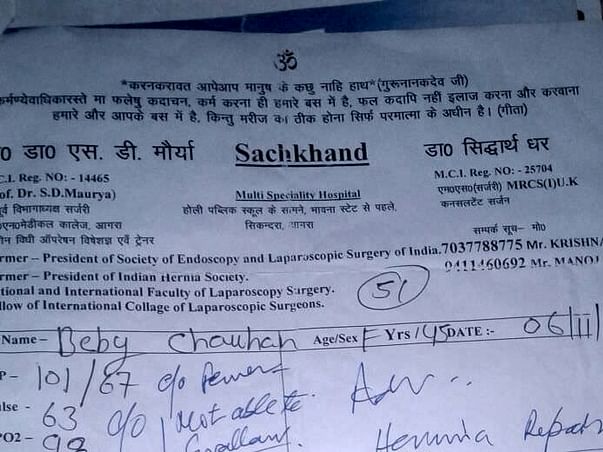 ॐ
*करनकरावत आपेआप मानुष के कछु नाहि हाथ*(गुरूनानकदेव जी)
कर्मण्येवाधिकारस्ते मा फलेषु कदाचन, कर्म करना ही हमारे बस में है, फल कदापि नहीं इलाज करना और करवाना
हमारे और आपके बस में है, किन्तु मरीज का ठीक होना सिर्फ परमात्मा के अधीन है। (गीता)
0 डा0 एस. डी. मौर्या Sachkhand डा0 सिद्धार्थ धर
C.I. Reg. NO: - 14465 M.C.I. Reg. NO: - 25704
of. Dr. S.D.Maurya) Multi Speciality Hospital एम0एस0(सर्जरी) MRCS(I)U.K
विभागाध्यक्ष सर्जरी होली पब्लिक स्कूल के सामने, भावना स्टेट से पहले, कनसलटेंट सर्जन
एन0मेडीकल कालेज, आगरा सिकन्दरा, आगरा
विधी ऑपरेषन विषेशज्ञ एवें ट्रेनर सम्पर्क सूच– मो0
rmer – President of Society of Endoscopy and Laparoscopic Surgery of India. 7037788775 Mr. KRISHNA
rmer – President of Indian Hernia Society. 9411460692 Mr. MANOJ
tional and International Faculty of Laparoscopy Surgery.
llow of International Collage of Laparoscopic Surgeons. 51
Name – Beby Chauhan Age/Sex F Yrs /45 DATE :- 06/11/
P - 101/67 c/o Adv
lse - 63 c/o not able to
PO2 - 98 Hernia